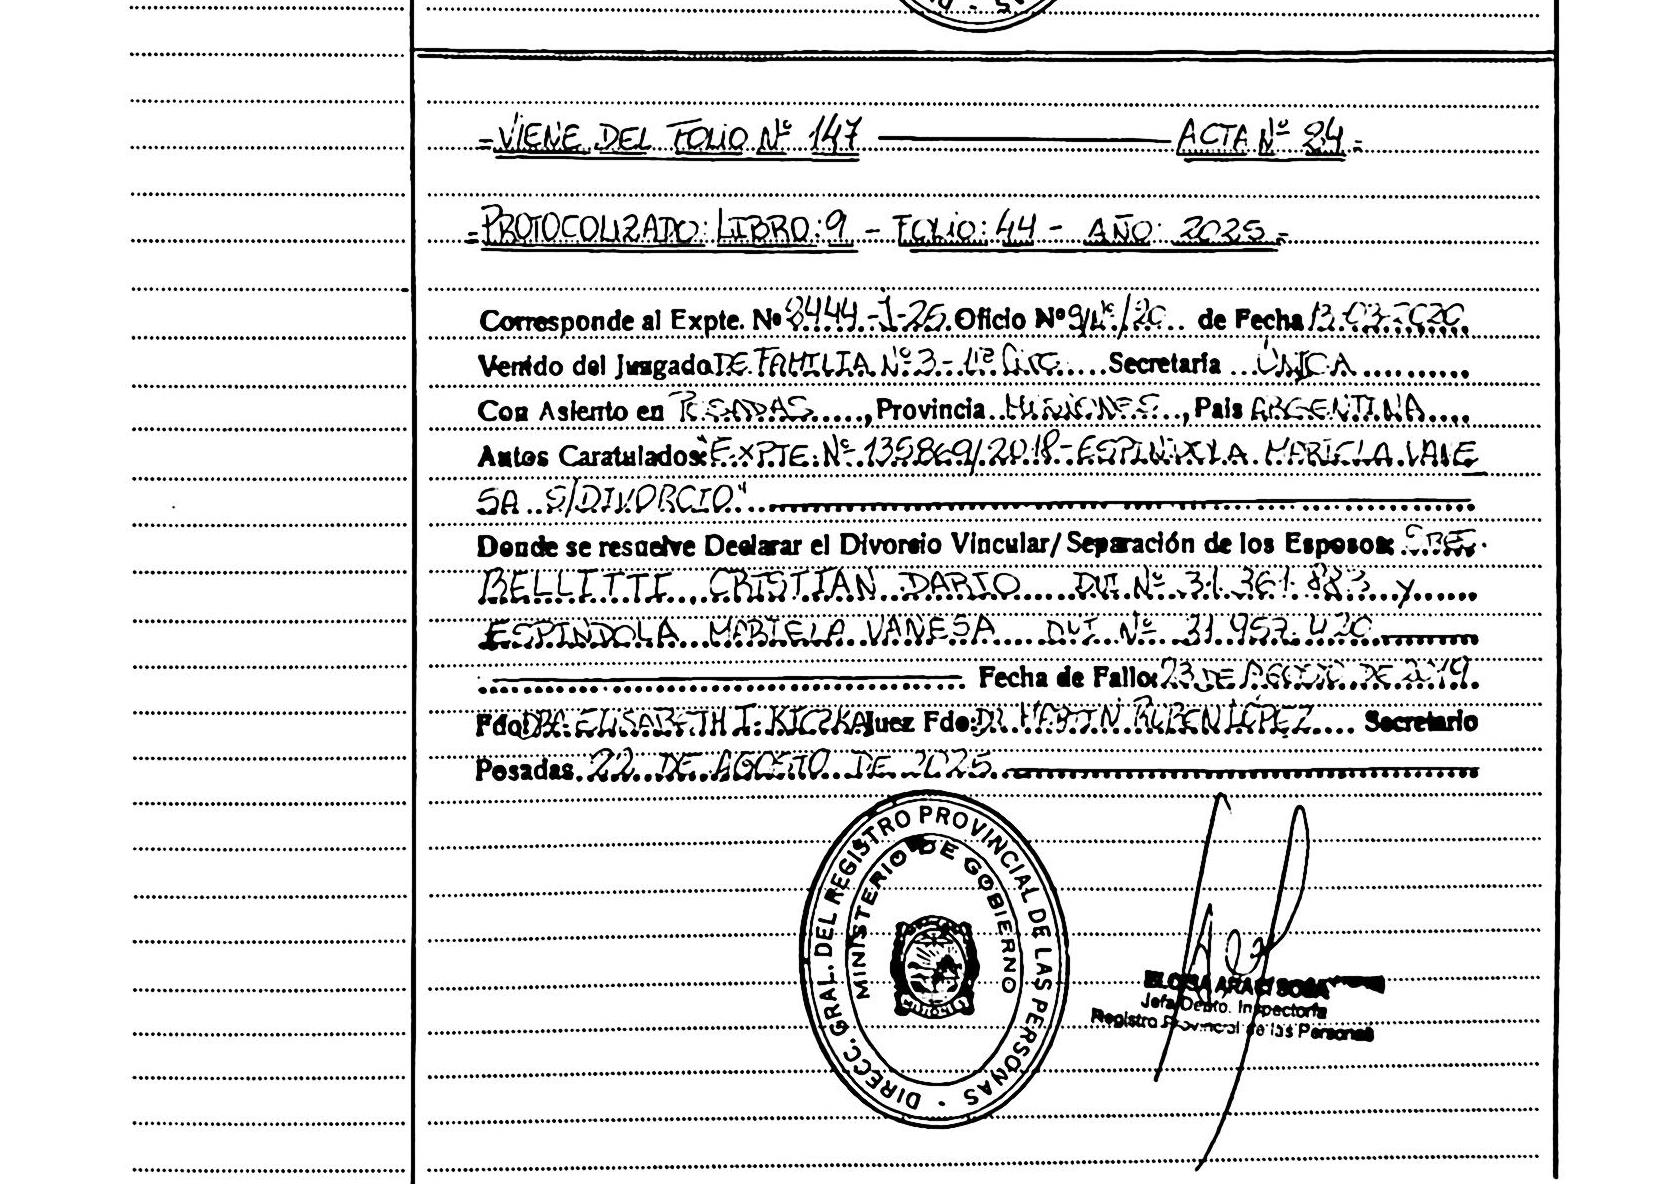 =VIENE DEL FOLIO Nº 147 ACTA Nº 24=
=PROTOCOLIZADO: LIBRO: 9 - FOLIO: 44 - AÑO: 2025=
Corresponde al Expte. Nº 8444-J-25 Oficio Nº /20 de Fecha 13-03-2020
Venido del Juzgado DE FAMILIA Nº 3 - 1ª Circ. Secretaría ÚNICA
Con Asiento en POSADAS, Provincia MISIONES, País ARGENTINA
Autos Caratulados: "EXPTE. Nº 135869/2018 - ESPINDOLA MARIELA VANE
SA S/DIVORCIO"
Donde se resuelve Declarar el Divorcio Vincular/Separación de los Esposos: SRES.
BELLITTI CRISTIAN DARIO DNI Nº 31.361.883 y
ESPINDOLA MARIELA VANESA DNI Nº 31.957.420
Fecha de Fallo: 23 DE AGOSTO DE 2019
Fdo: DRA. ELISABETH I. KICZKA Juez Fdo: Dr. MARTIN RUBEN LÓPEZ Secretario
Posadas, 22 DE AGOSTO DE 2025
DIRECC. GRAL. DEL REGISTRO PROVINCIAL DE LAS PERSONAS
MINISTERIO DE GOBIERNO
ELOISA ARACI SOSA
Jefa Depto. Inspectoría
Registro Provincial de las Personas